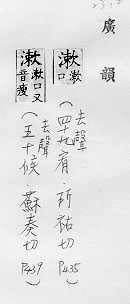 廣韻
漱 漱口
去聲
(四十九宥．所祐切 P435)
漱 漱口又音瘦
去聲
(五十候．蘇奏切 P439)